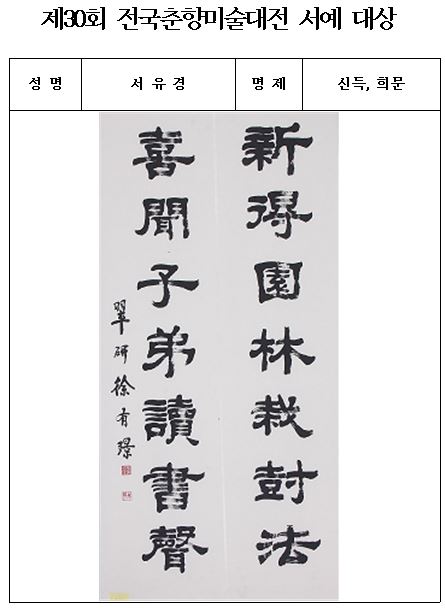 제30회 전국춘향미술대전 서예 대상
성 명 서 유 경 명 제 신득, 희문
新得園林栽𡊋法
喜聞子弟讀書聲
翠研徐有璟